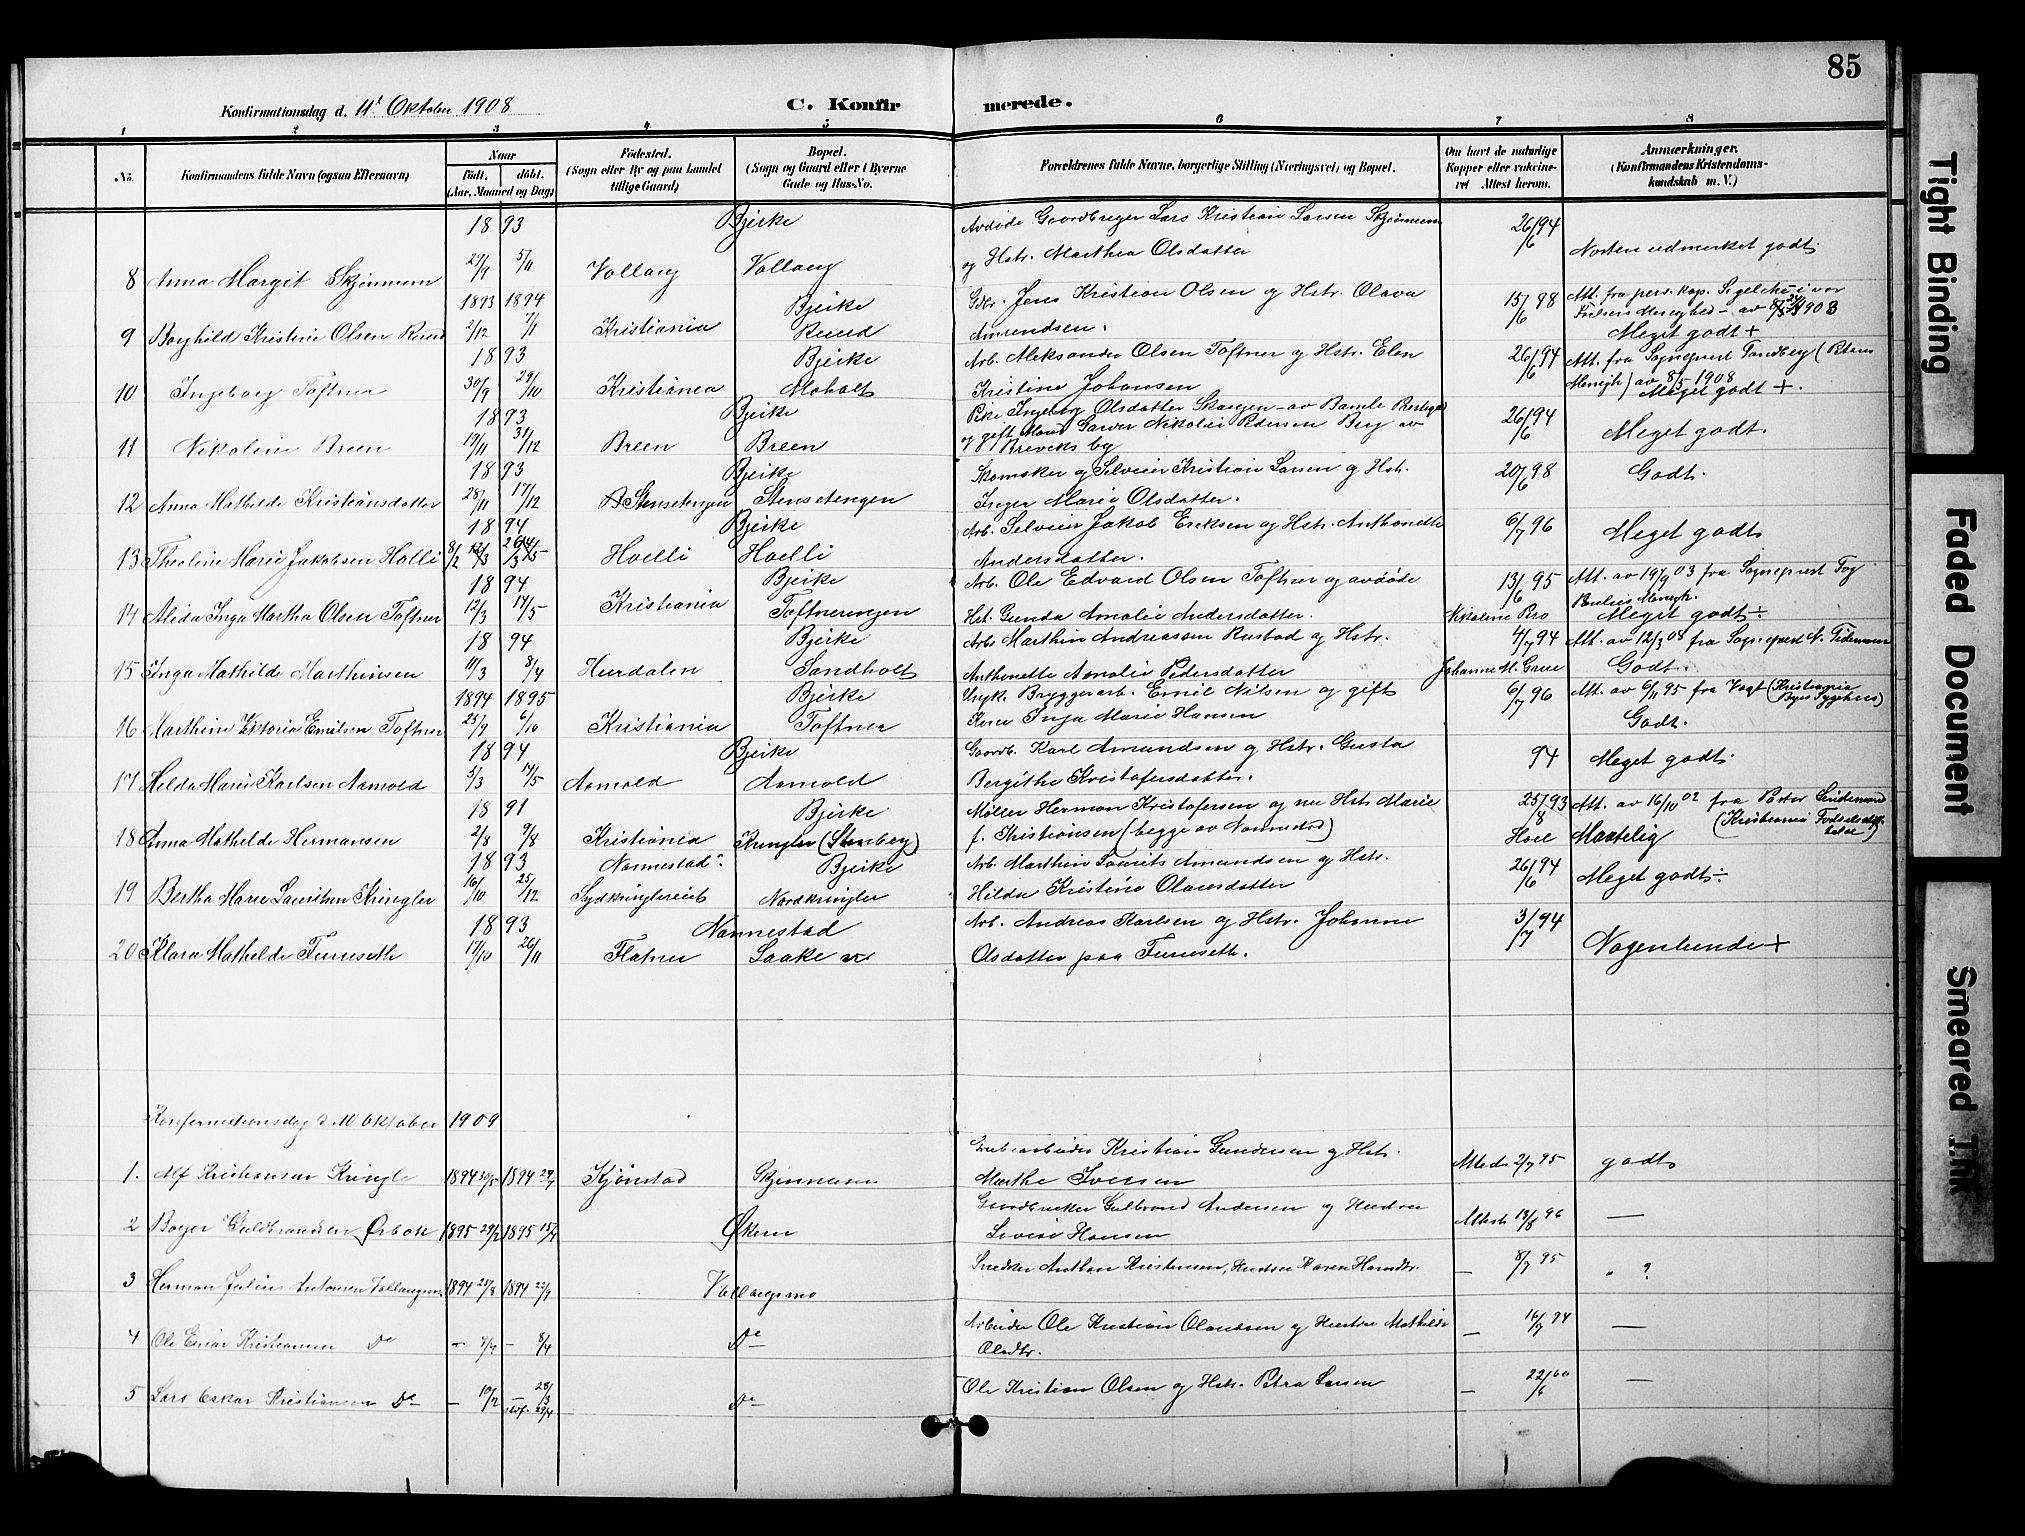 85
Konfirmationsdag d. 11t Oktober 1908
C. Konfirmerede.
1 2 3 4 5 6 7 8
No. Konfirmandens fulde Navn (ogsaa Efternavn)
Naar
Født. døbt.
(Aar, Maaned og Dag)
Fødested.
(Sogn eller By og paa Landet
tillige Gaard)
Bopæl.
(Sogn og Gaard eller i Byerne
Gade og Hus-No.
Forældrenes fulde Navne, borgerlige Stilling (Næringsvei) og Bopæl.
Om havt de naturlige
Kopper eller vakcine-
ret Attest herom.
Anmærkninger.
(Konfirmandens Kristendoms-
kundskab m. V.)
1893 Bjerke Avdøde Gaardbruger Lars Kristian Larsen Skjennum 26/6 94
8 Anna Margit Skjennum 27/9 5/11 Vollaug Vollaug og Hstr. Marthea Olsdatter Nesten udmerket godt.
1893 1894 Bjerke Gdbr. Jens Kristian Olsen og Hstr. Olava 15/6 98
9 Borghild Kristine Olsen Ruud 2/12 7/1 Kristiania Ruud Amundsen. Meget godt +
1893 Bjerke Arb. Aleksander Olsen Toftner og Hstr. Elen 26/6 94 Att. fra Sogneprest Tandberg (Petrus
10 Ingeborg Toftner 30/9 29/10 Kristiania Moholt Kristine Johansen Menigh) av 8/5 1908 Meget godt +.
1893 Bjerke Pike Ingeborg Olsdatter Skaugen - av Bamle Prestegj 26/6 94
11 Nikoline Breen 19/11 31/12 Breen Breen og gift Mand Garver Nikolai Pedersen Berg av Breviks by Meget godt.
1893 Bjerke Skomaker og Selveier Kristian Larsen og Hstr. 20/6 98 Godt.
12 Anna Mathilde Kristiansdatter 28/11 17/12 Stensetengen Stensetengen Inger Marie Olsdatter.
1894 Bjerke Arb. Selveier Jakob Eriksen og Hstr. Anthonette 6/7 96
13 Theoline Marie Jakobsen Holli 8/2 Hoelli Hoelli Andersdatter. Meget godt
1894 Bjerke Arb. Ole Edvard Olsen Toftner og avdøde 13/6 95 Att. av 19/9 03 fra Sogneprest Fog
14 Alida Inga Martha Olsen Toftner 12/3 14/5 Kristiania Toftnerengen Hst. Gunda Amalie Andersdatter. Nikoline Bro Paulus Menigh. Meget godt ÷
1894 Bjerke Arb. Marthin Andreassen Rustad og Hstr. 4/7 94 Att. av 12/3 08 fra Sogneprest N. Tidemann
15 Inga Mathilde Marthinsen 11/3 8/4 Hurdalen Sandholt Anthonette Amalie Pedersdatter Johanne M. Grue Godt.
1894 1895 Bjerke Ugift. Bryggerarb. Emil Nilsen og gift 6/7 96 Att. av 6/11 95 fra Vogt (Kristiania Byes Sygehus)
16 Marthine Viktoria Emilsen Toftner 25/9 6/10 Kristiania Toftner Kone Inga Marie Hansen Godt.
1894 Bjerke Gaardb. Karl Amundsen og Hstr. Gusta 94
17 Hilda Marie Karlsen Aamold 5/3 14/5 Aamold Aamold Bergithe Kristofersdatter. Meget godt.
1891 Bjerke Møller Herman Kristofersen og nu Hstr. Marie 25/8 93 Att. av 16/10 02 fra Pastor Lindemand
18 Anna Mathilde Hermansen 2/8 9/8 Kristiania Kringler (Stenberg) f. Kristiansen (begge av Nannestad) Hoel Maatelig (Kristiania Fødselsstiftelse)
1893 Nannestad. Bjerke Arb. Marthin Laurits Amundsen og Hstr. 26/6 94
19 Bertha Marie Lauritsen Kringler 16/10 25/12 Sydkringlereiet Nordkringler Hilda Kristine Olausdatter Meget godt ÷
1893 Nannestad Arb. Andreas Karlsen og Hstr. Johanne 3/7 94
20 Klara Mathilde Furuseth 17/10 26/11 Flatner Laake Olsdatter paa Furuseth. Nogenlunde +
Konfirmationsdag d. 10 Oktober 1909
1. Alf Kristiansen Kringle 1894 20/5 1894 Kjønstad Skjennum Kristian Gundersen og Hstr. Marthe Iversen Attest 2/7 95 godt
2 Borger Guldbrandsen Ørbak 1895 29/2 1895 15/4 Økern Gaardbruker Gulbrand Andersen og Hustru Lovise Hansen Attest 13/8 96 —
3 Herman Julius Antonsen Vollaugmo 1894 25/8 1894 23/9 Vollaugsmo Snedker Anthon Kristiansen, Hustru Karen Hansdtr. — 8/7 95 " ?
4 Ole Einar Kristiansen Do — 7/9 — 8/4 Do Arbeider Ole Kristian Olausen og Hustru Mathilde Olsdtr. — 16/7 94 —
5 Lars Oskar Kristiansen Do — 10/2 — 28/3 Do Ole Kristian Olsen og Hstr. Petra Larsen — 22/6 00 —
Tight Binding
Faded Document
Smeared Ink